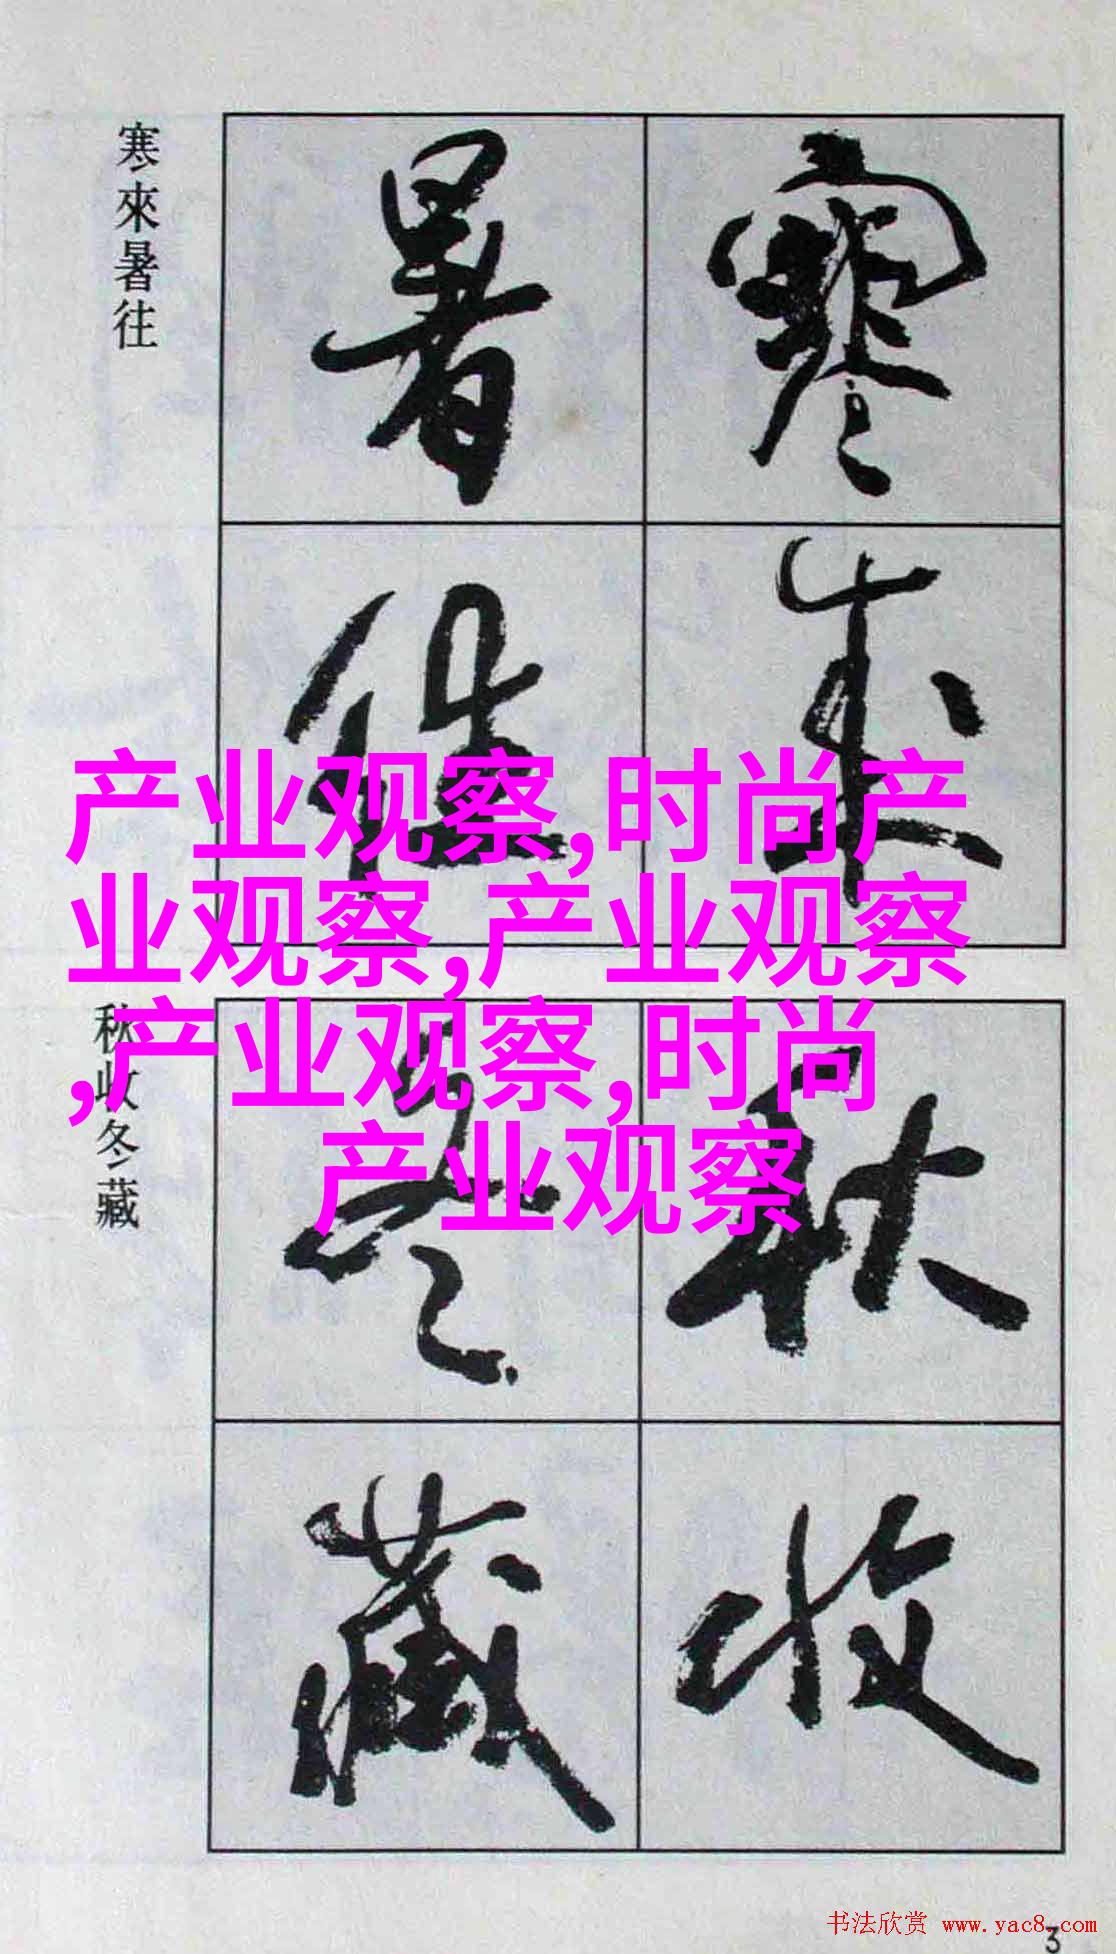 寒來暑往
寒來
暑往
产业观察,时尚产
业观察,产业观察
,产业观察,时尚
产业观察
秋收冬藏
秋收
冬藏
书法欣赏 www.yac8.com
3